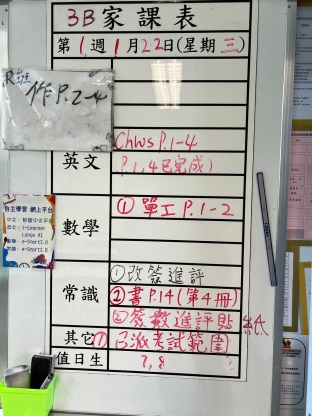 3B家課表
第1週1月22日(星期三)
作P.2-4
英文
Chws P.1-4
(P.1,4已完成)
自主學習網上平台
數學
①單工P.1-2
常識
①改簽進評
②書P.14(第4冊)
③簽數進評貼紙
其它
①已派考試範圍
值日生
7,8